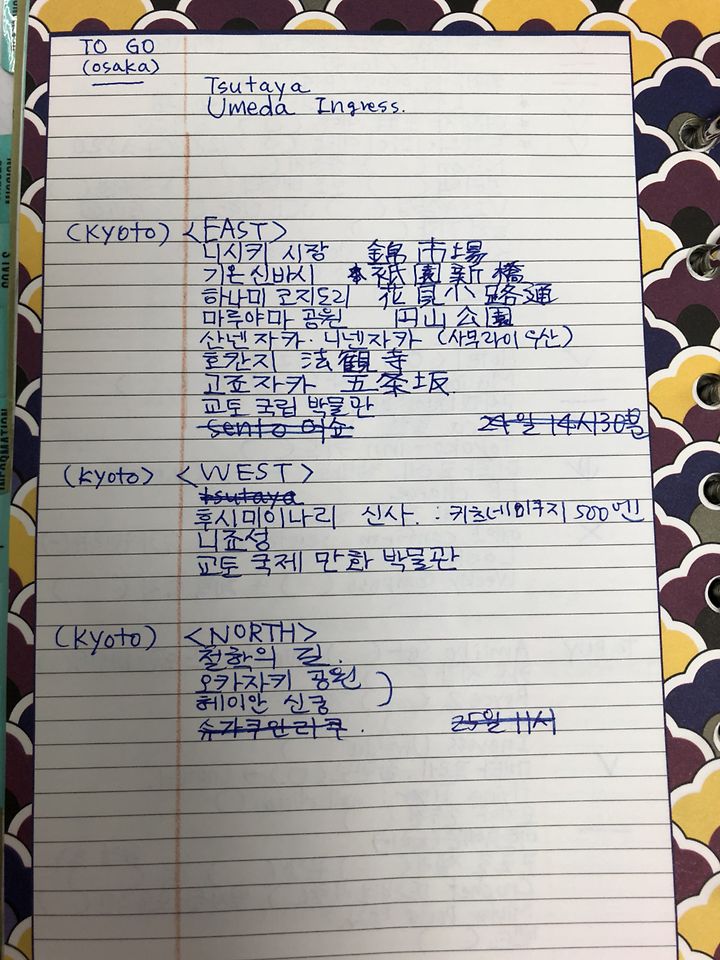 TO GO
(osaka)
Tsutaya
Umeda Ingress.
(Kyoto) <EAST>
니시키 시장 錦市場
기온신바시 祇園新橋
하나미코지도리 花見小路通
마루야마 공원 円山公園
산넨자카·니넨자카 (사무라이 우산)
호칸지 法観寺
고죠자카 五条坂
교토 국립 박물관
sento 어쇼 24일 14시30분
(Kyoto) <WEST>
tsutaya
후시미이나리 신사. : 키츠네마쿠지 500엔
니죠성
교토 국제 만화 박물관
(Kyoto) <NORTH>
철학의 길.
오카자키 공원
헤이안 신궁
슈가쿠인리큐. 25일 11시
MISSION
GOALS
INFORMATION